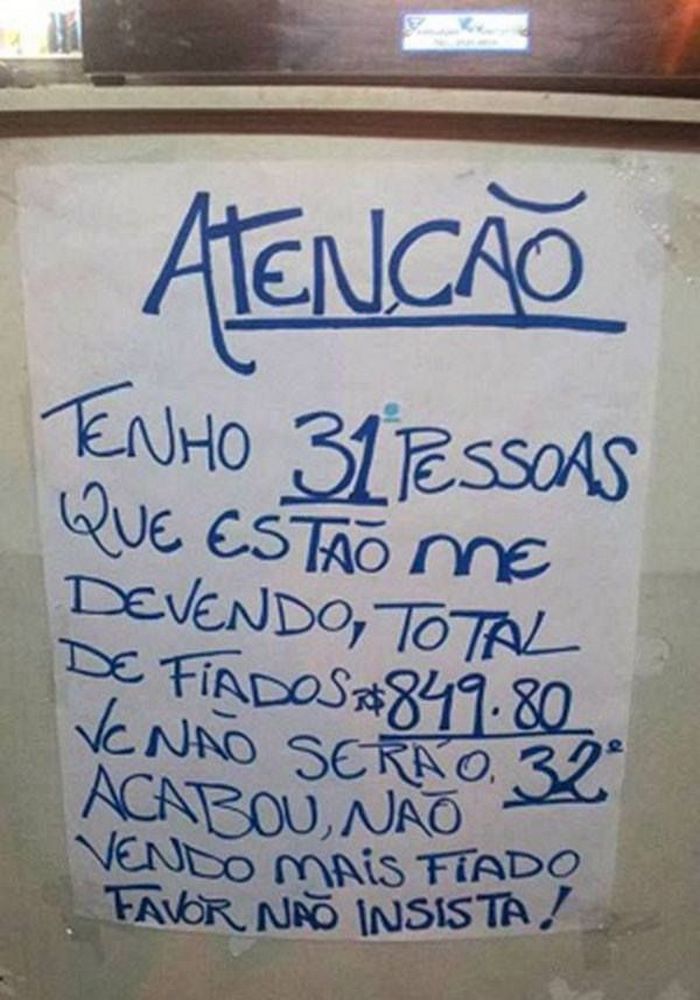 ATENÇÃO
TENHO 31 PESSOAS
QUE ESTÃO ME
DEVENDO, TOTAL
DE FIADOS R$ 849.80
VC NÃO SERÁ O. 32º
ACABOU, NÃO
VENDO MAIS FIADO
FAVOR NÃO INSISTA!